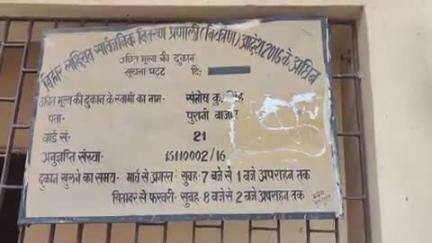 बिहार लक्षित सार्वजनिक वितरण प्रणाली (नियंत्रण) आदेश 2016 के अधिन
उचित मूल्य की दुकान
सूचना पट्ट दि:
उचित मूल्य की दुकान के स्वामी का नाम- संतोष कु. सिंह
पता- पुरानी बाजार
वार्ड सं- 21
अनुज्ञप्ति संख्या- 15110002/16
दुकान खुलने का समय- मार्च से अगस्त: सुबह- 7 बजे से 1 बजे अपराहन तक
सितम्बर से फरवरी- सुबह 8 बजे से 2 बजे अपराहन तक